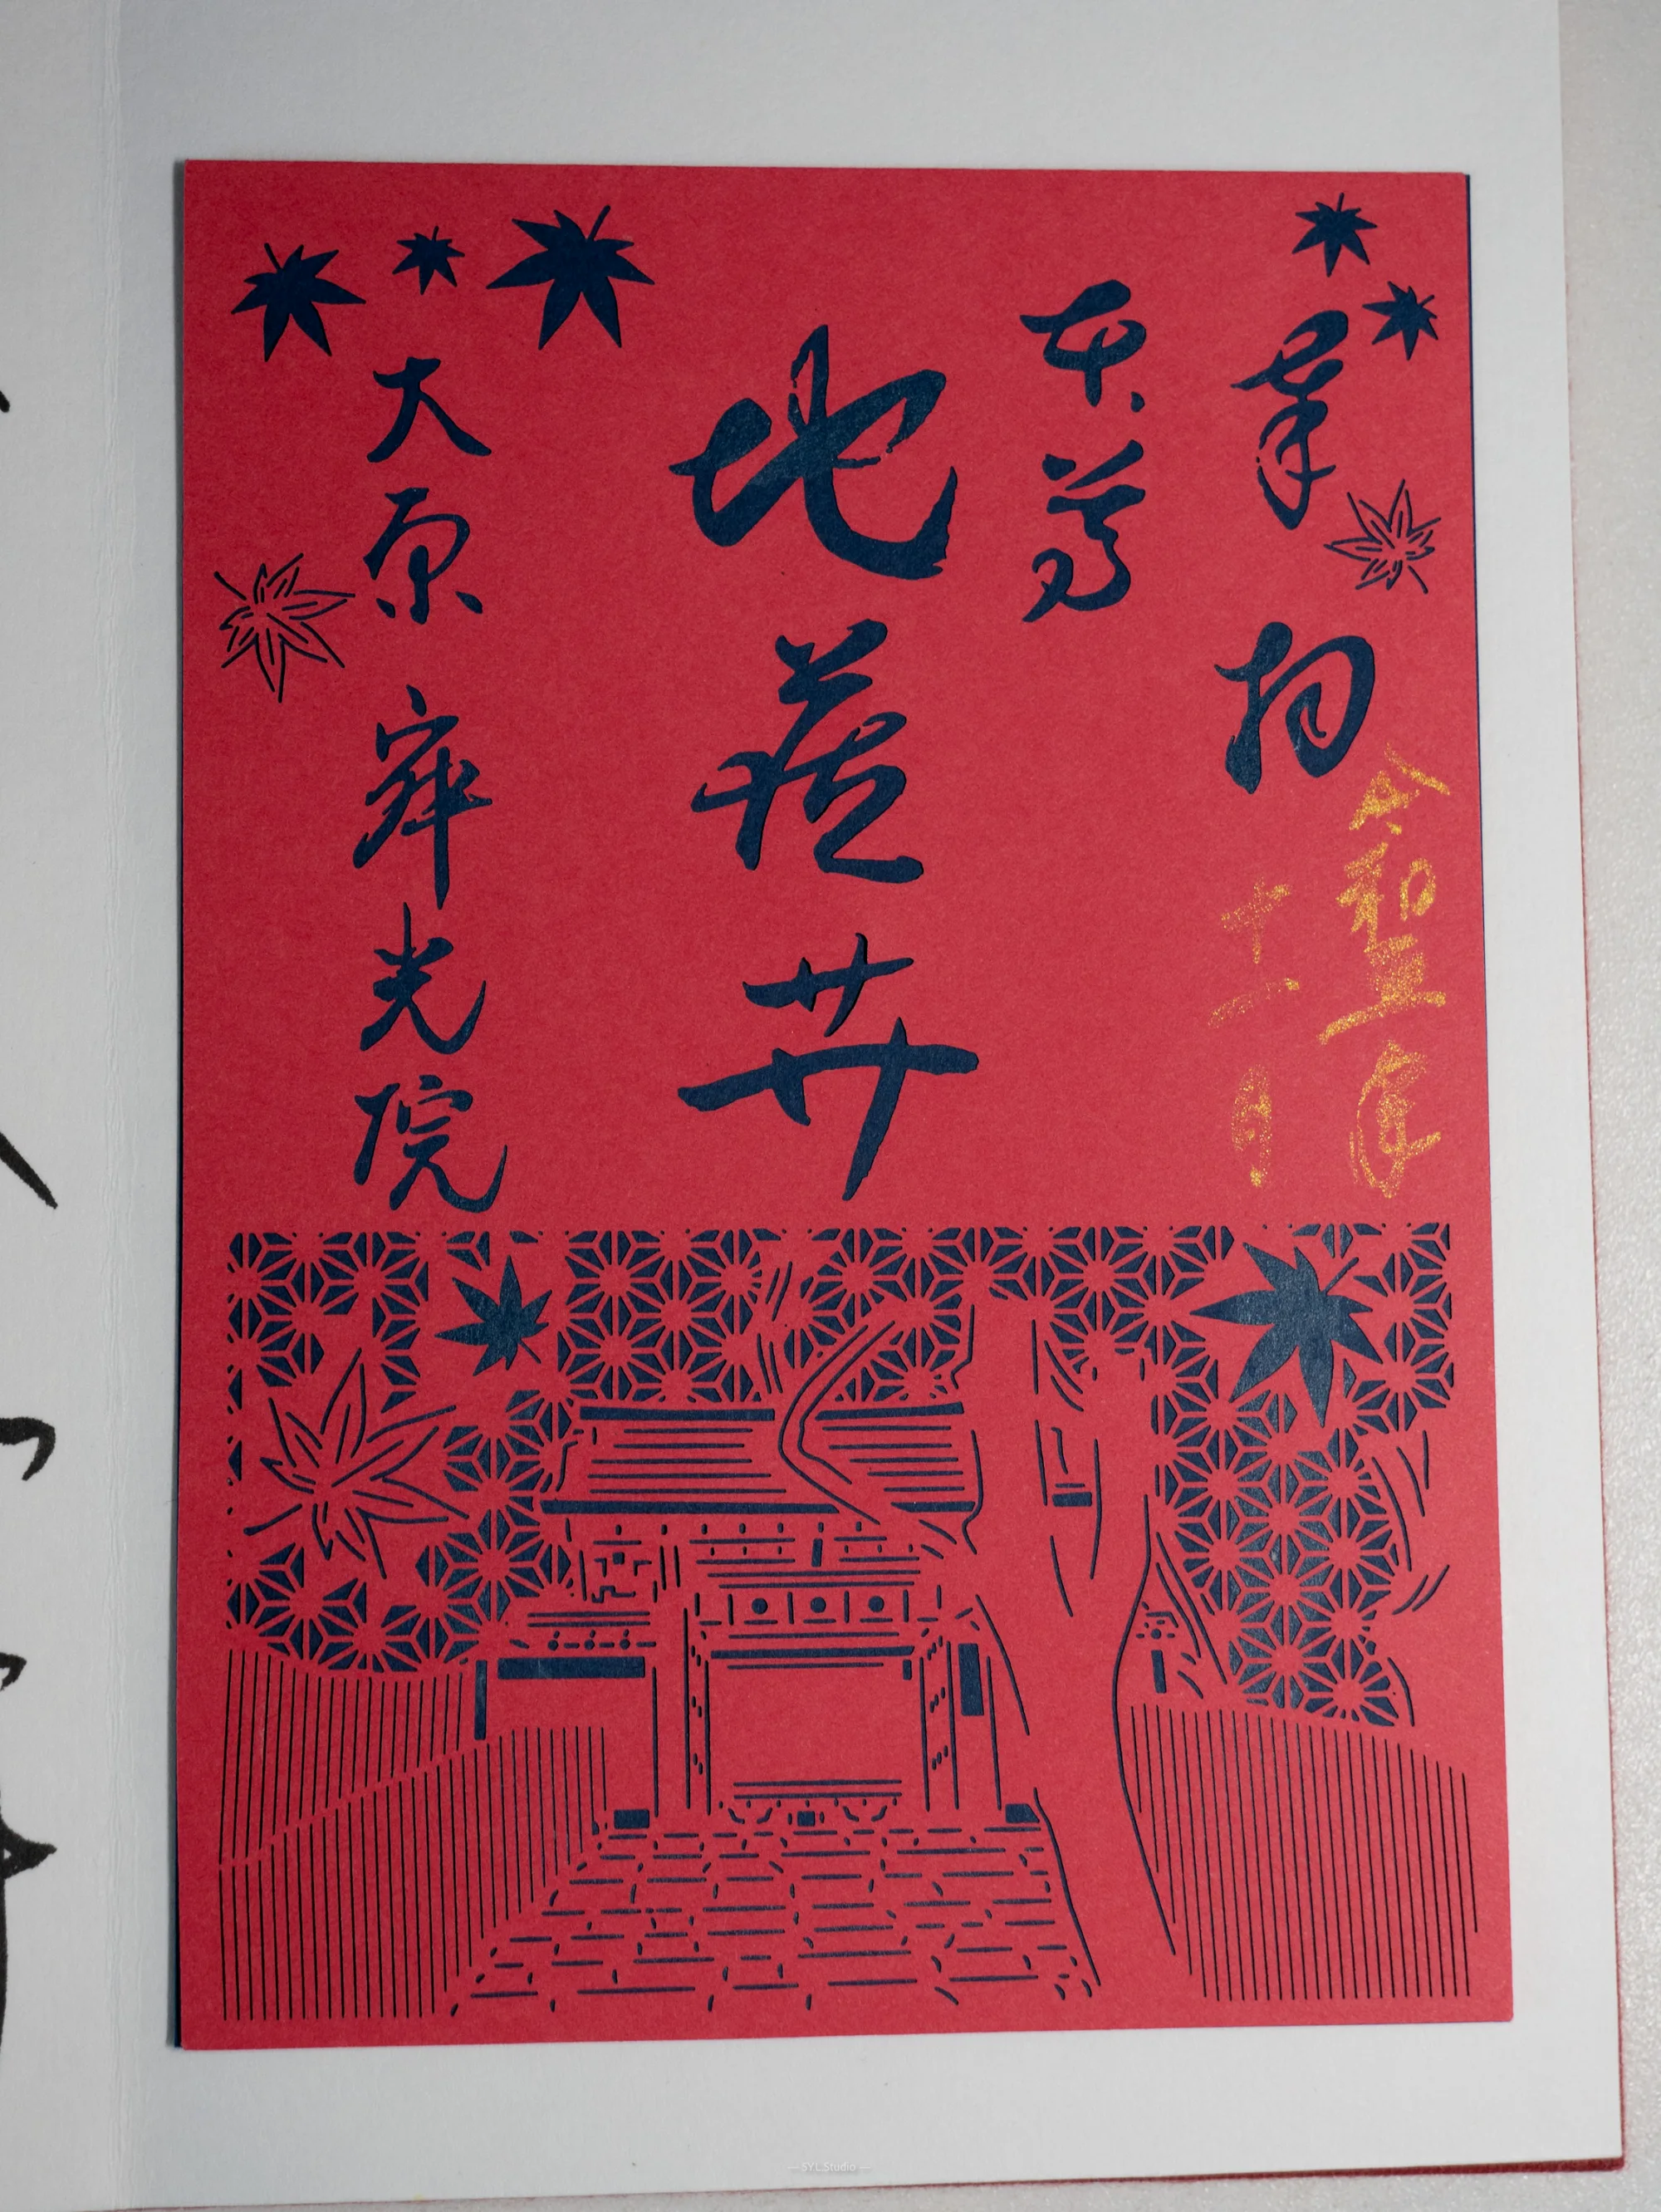 奉拝
令和五年
十一月
本尊
地蔵𦬇
大原寂光院
— SYL.Studio —